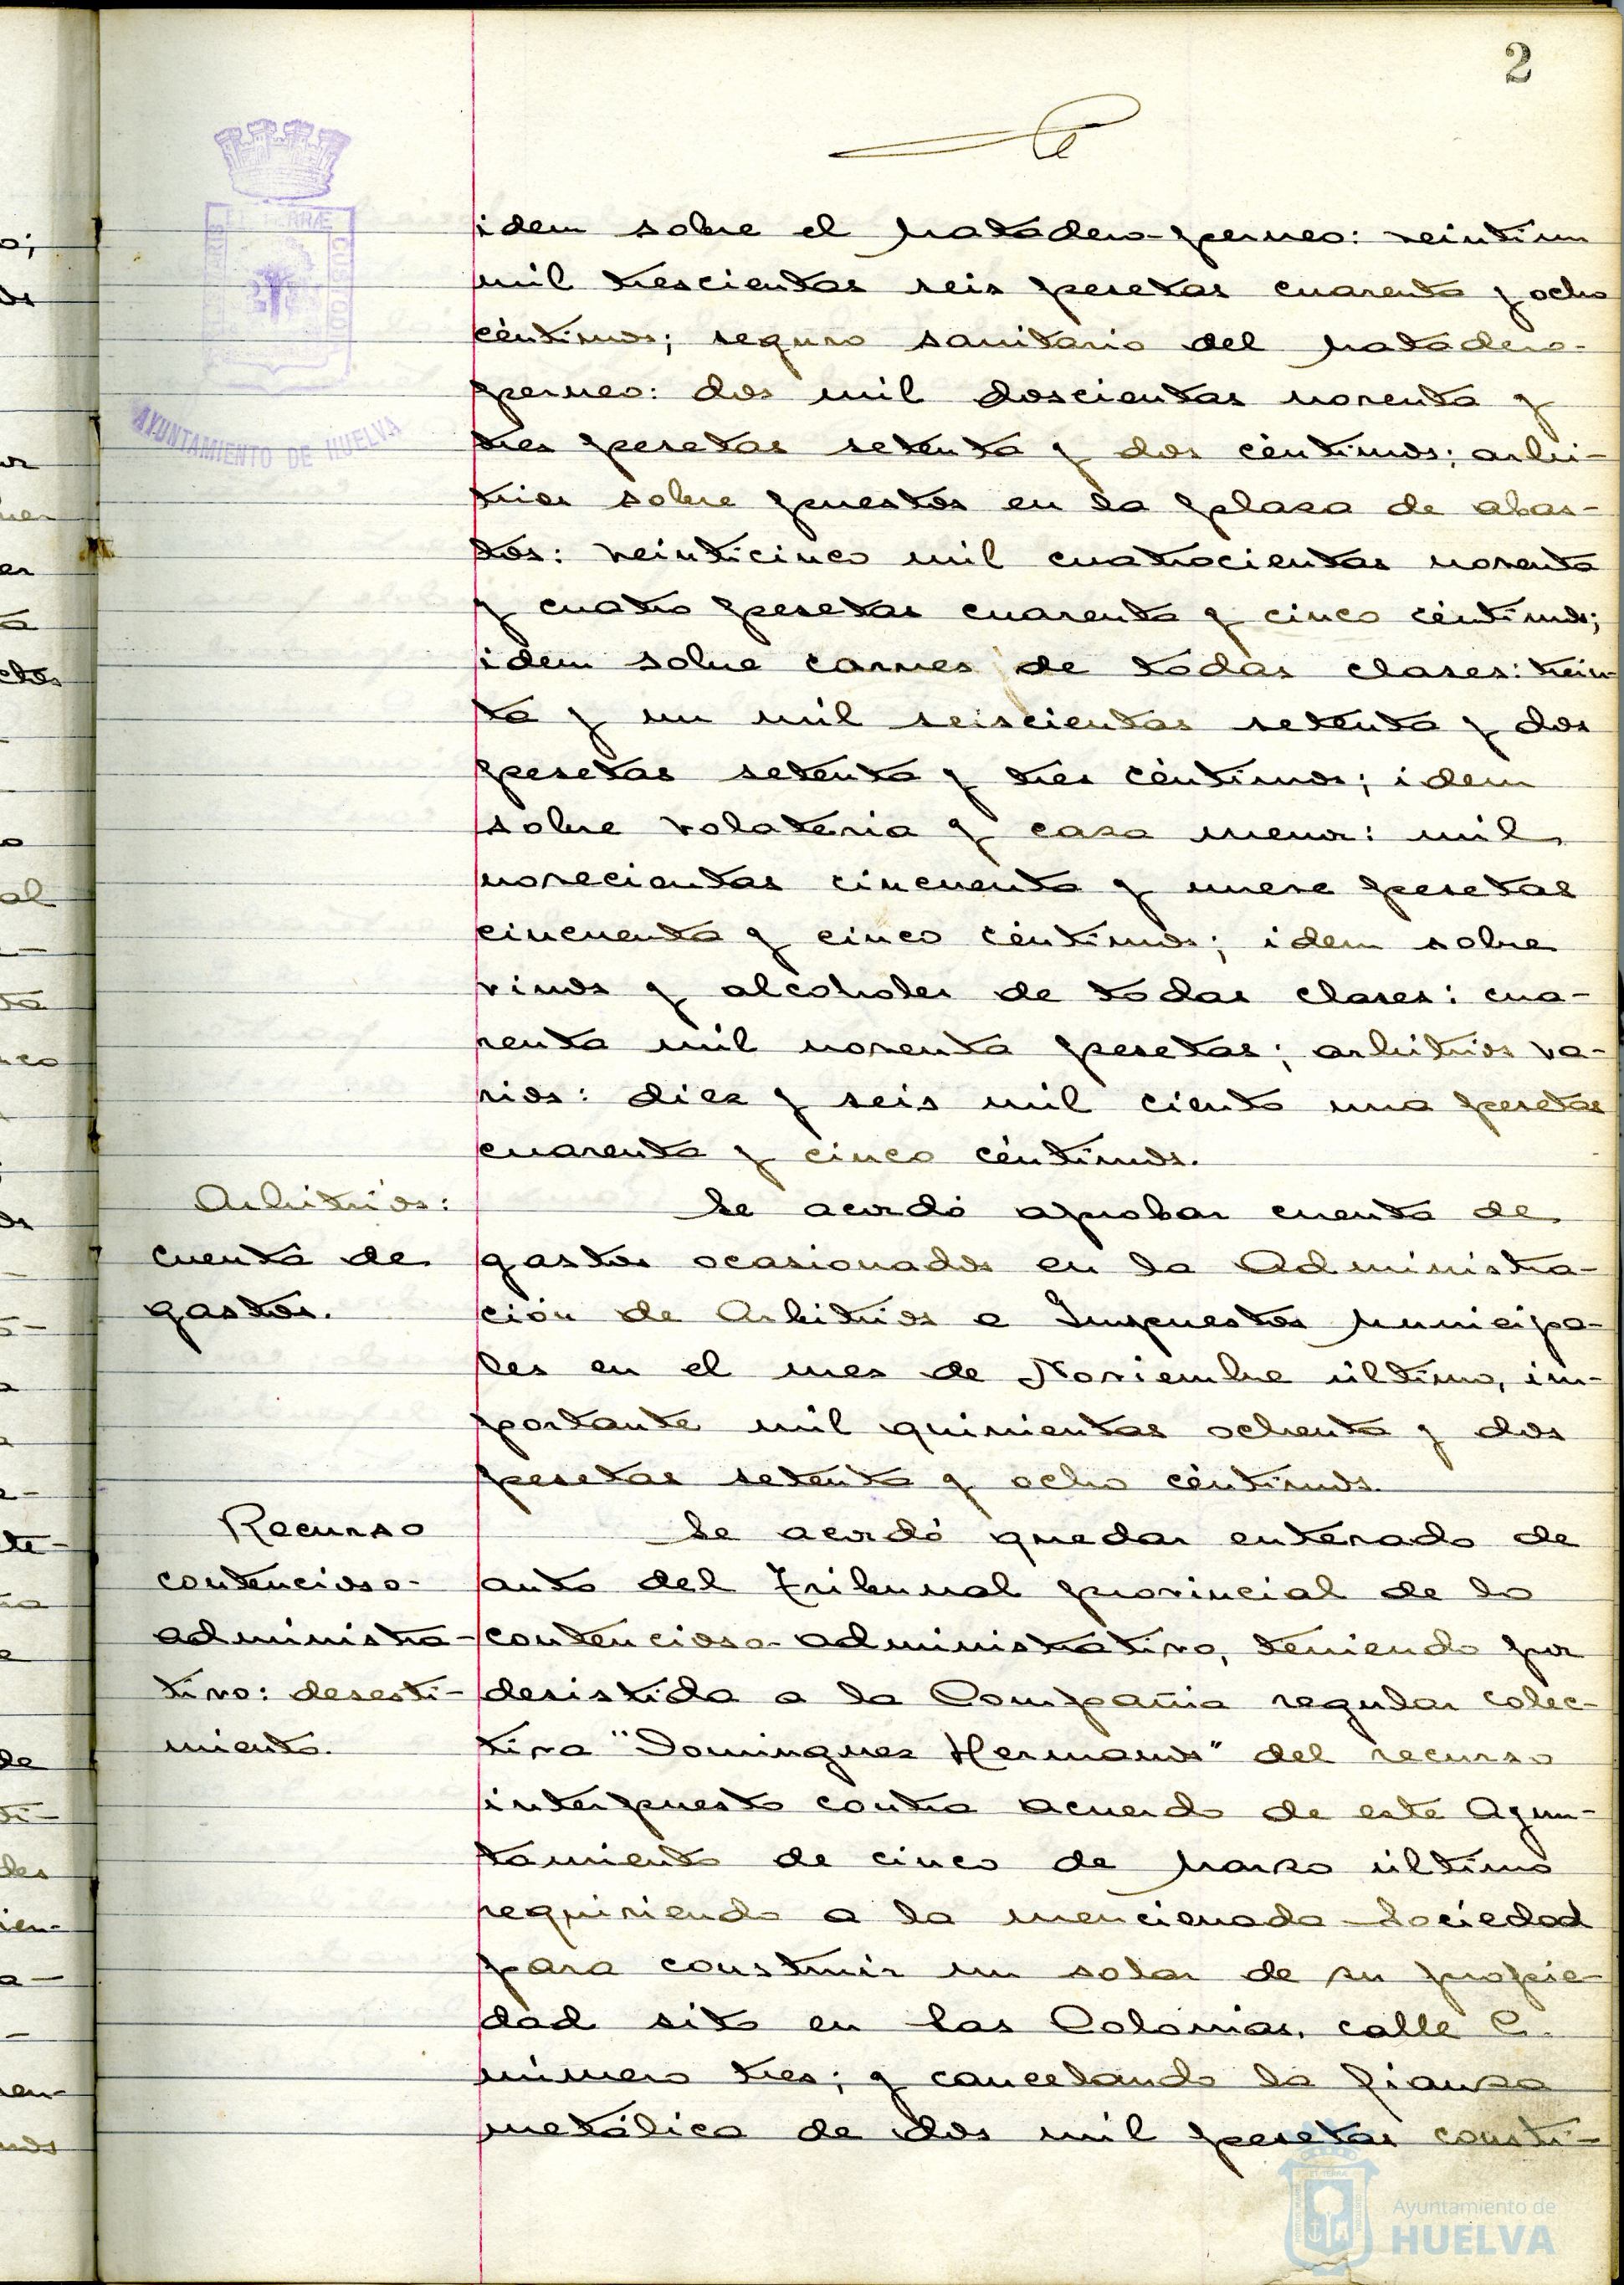 2
idem sobre el Matadero-perneo: veintiun
mil trescientas seis pesetas cuarenta y ocho
céntimos; seguro sanitario del Matadero-
perneo: dos mil doscientas noventa y
tres pesetas setenta y dos céntimos; arbi-
trios sobre puestos en la plaza de abas-
tos: veinticinco mil cuatrocientas noventa
y cuatro pesetas cuarenta y cinco céntimos;
idem sobre carnes de todas clases: trein-
ta y un mil seiscientas setenta y dos
pesetas setenta y tres céntimos; idem
sobre volatería y caza menor: mil
novecientas cincuenta y nueve pesetas
cincuenta y cinco céntimos; idem sobre
vinos y alcoholes de todas clases: cua-
renta mil noventa pesetas; arbitrios va-
rios: diez y seis mil ciento una pesetas
cuarenta y cinco céntimos.
Arbitrios:
cuenta de
gastos.
Se acordó aprobar cuenta de
gastos ocasionados en la Administra-
ción de Arbitrios e Impuestos Municipa-
les en el mes de Noviembre último, im-
portante mil quinientas ochenta y dos
pesetas setenta y ocho céntimos.
Recurso
contencioso-
administra-
tivo: desesti-
miento.
Se acordó quedar enterado de
auto del Tribunal provincial de lo
contencioso-administrativo, teniendo por
desistida a la Compañía regular colec-
tiva "Dominguez Hermanos" del recurso
interpuesto contra acuerdo de este Ayun-
tamiento de cinco de Marzo último
requiriendo a la mencionada Sociedad
para construir un solar de su propie-
dad sito en las Colonias, calle C.
número tres; y cancelando la fianza
metálica de dos mil pesetas consti-
AYUNTAMIENTO DE HUELVA
Ayuntamiento de
HUELVA